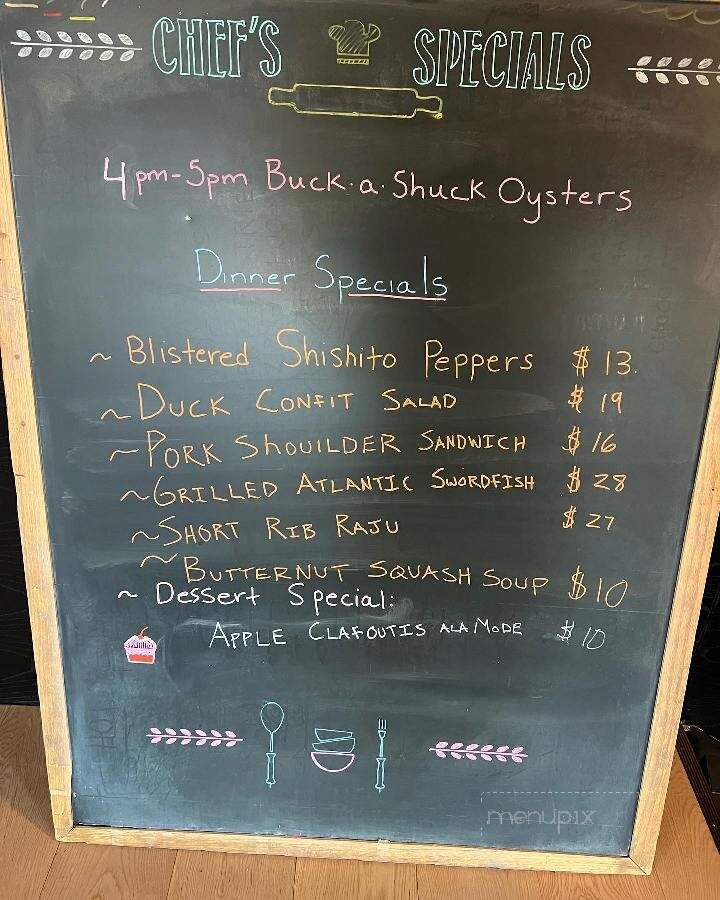 CHEF'S SPECIALS
4pm-5pm Buck·a·Shuck Oysters
Dinner Specials
~ Blistered Shishito Peppers $ 13.
~ DUCK CONFIT SALAD $ 19
~ PORK SHOUILDER SANDWICH $ 16
~ GRILLED ATLANTIC SWORDFISH $ 28
~ SHORT RIB RAJU $ 27
~ BUTTERNUT SQUASH SOUP $ 10
~ Dessert Special:
APPLE CLAFOUTIS ALA MODE $ 10
menupix